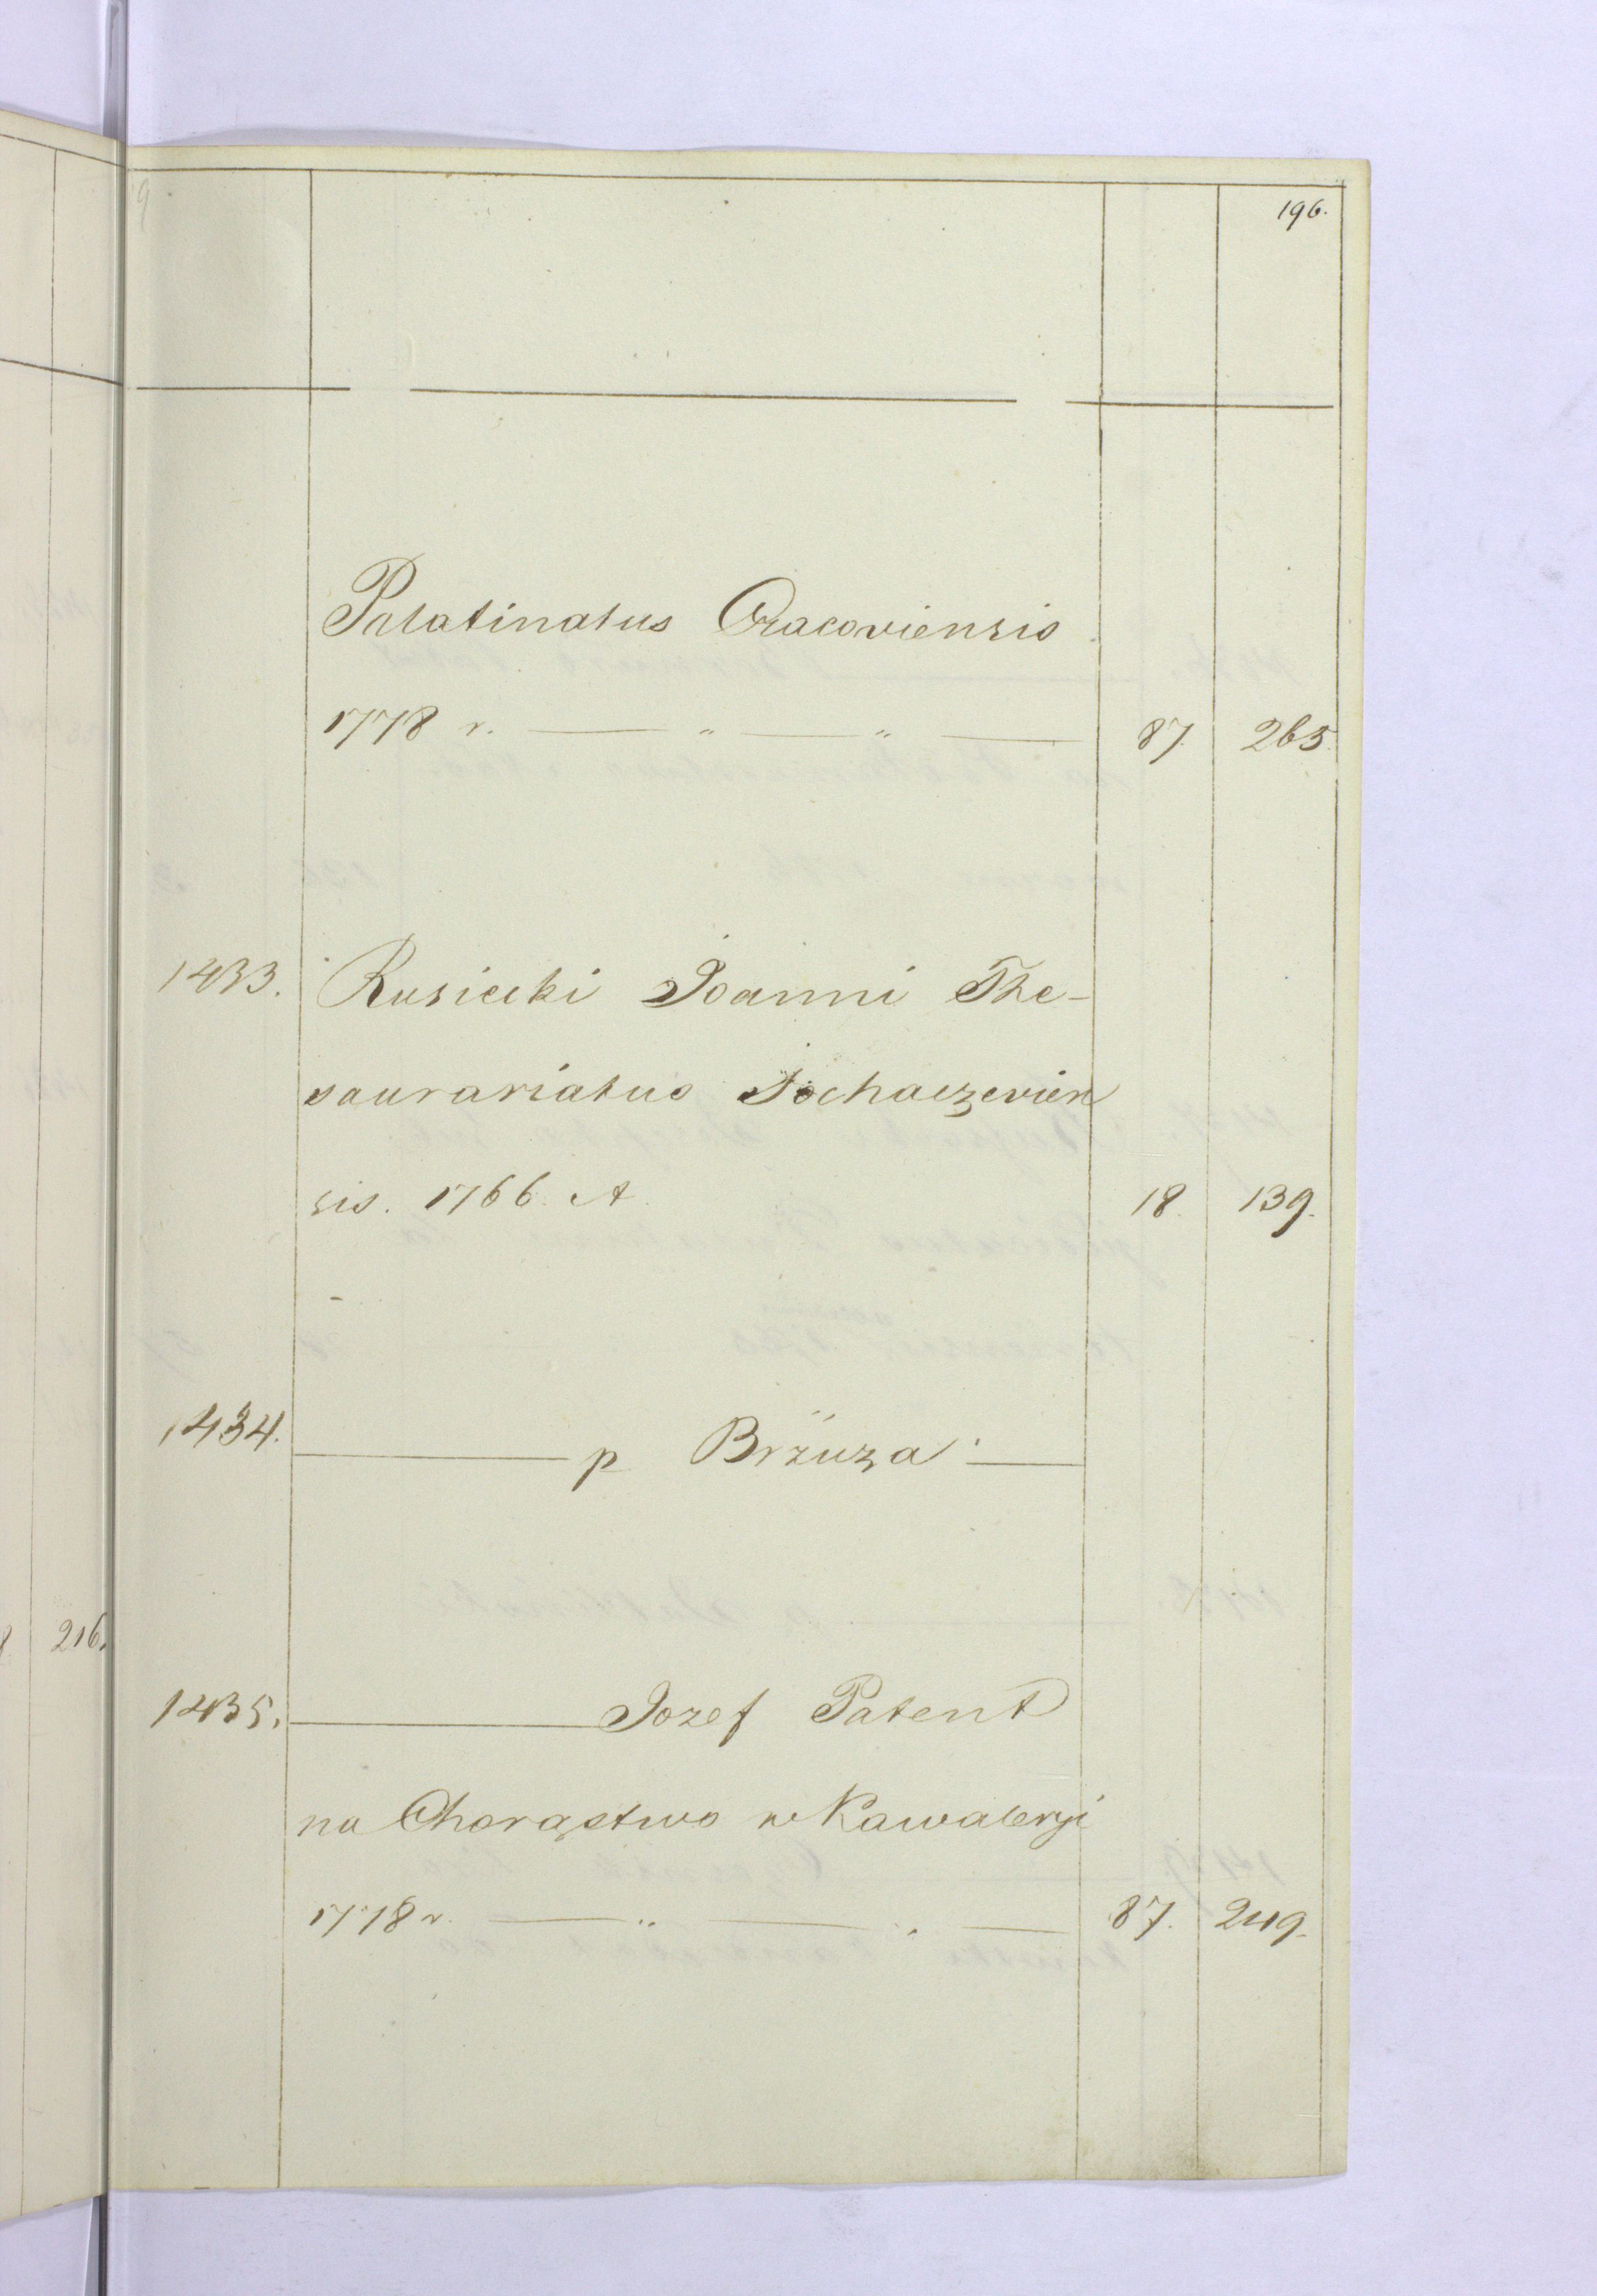 196.
Palatinatus Cracoviensis
1778 r. — " — " — 87. 265.
1433. Rusiecki Joanni The-
saurariatus Sochaczevien
sis. 1766. A 18. 139.
1434. — p Brzuza. —
1435. — Jozef Patent
na Chorąstwo w Kawaleryi
1778 r. — " — " — 87. 249.
216.